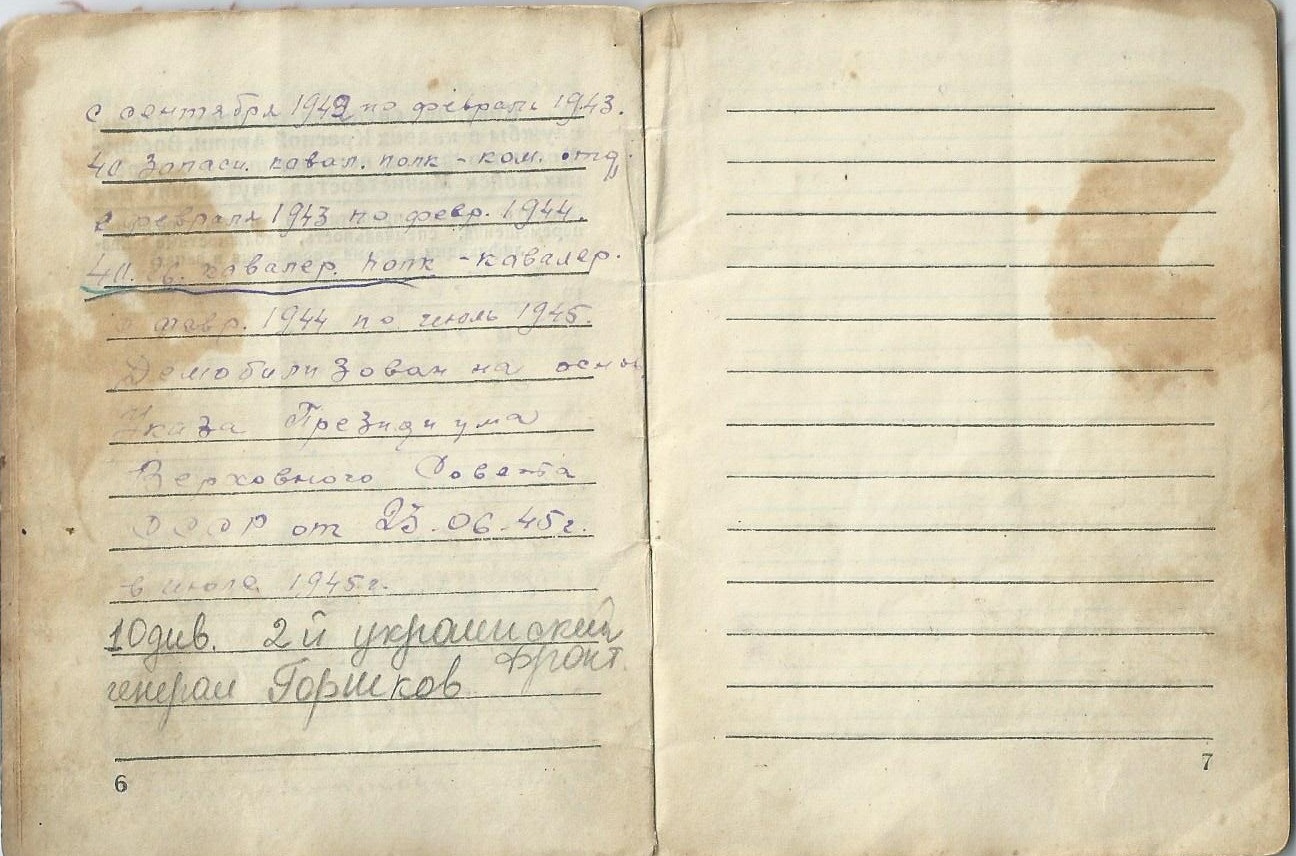 с сентября 1942 по февраль 1943.
40 Запасн. кавал. полк - ком. отд.
с февраля 1943 по февр. 1944.
40. Гв. кавалер. полк - кавалер.
с февр. 1944 по июль 1945.
Демобилизован на основ.
Указа Президиума
Верховного Совета
СССР от 23.06.45г.
в июле 1945г.
10 див. 2й украинский
фронт.
генерал Горшков
6
7